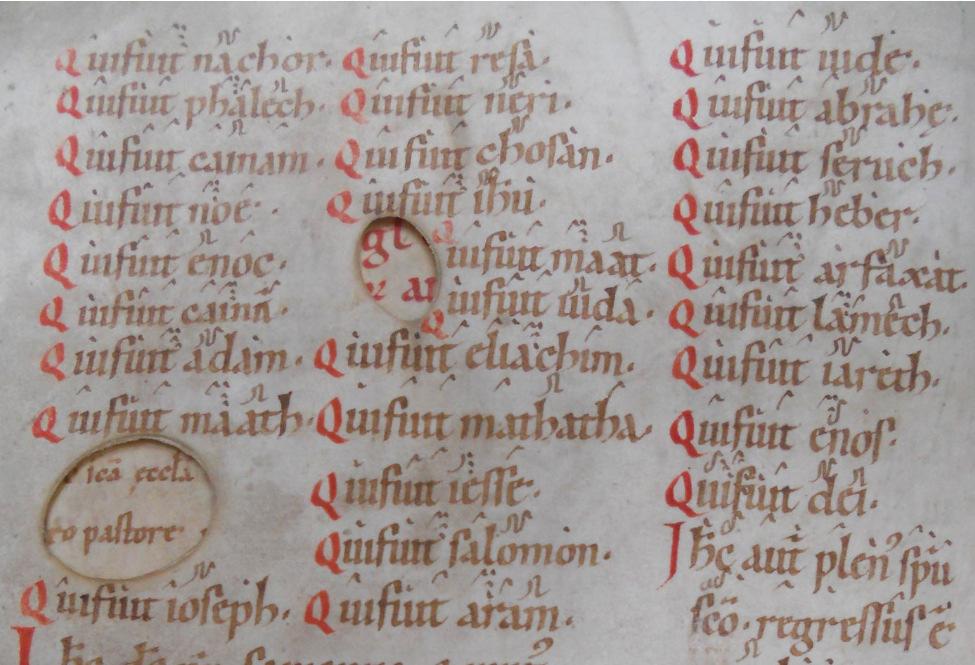 Qui fuit nachor.
Qui fuit phalech.
Qui fuit cainam.
Qui fuit noe.
Qui fuit enoc.
Qui fuit cainā.
Qui fuit adam.
Qui fuit maath.
icā eccła
pastore
Qui fuit ioseph.
Qui fuit resa.
Qui fuit neri.
Qui fuit chosan.
Qui fuit ihu.
gl
Qui fuit maat.
Qui fuit iuda.
Qui fuit eliachim.
Qui fuit mathatha.
Qui fuit iesse.
Qui fuit salomon.
Qui fuit aram.
Qui fuit iude.
Qui fuit abrahę.
Qui fuit seruch.
Qui fuit heber.
Qui fuit arfaxat.
Qui fuit lamech.
Qui fuit iareth.
Qui fuit enos.
Qui fuit dei.
Ihc aut plen' spu
sco. regressus ē